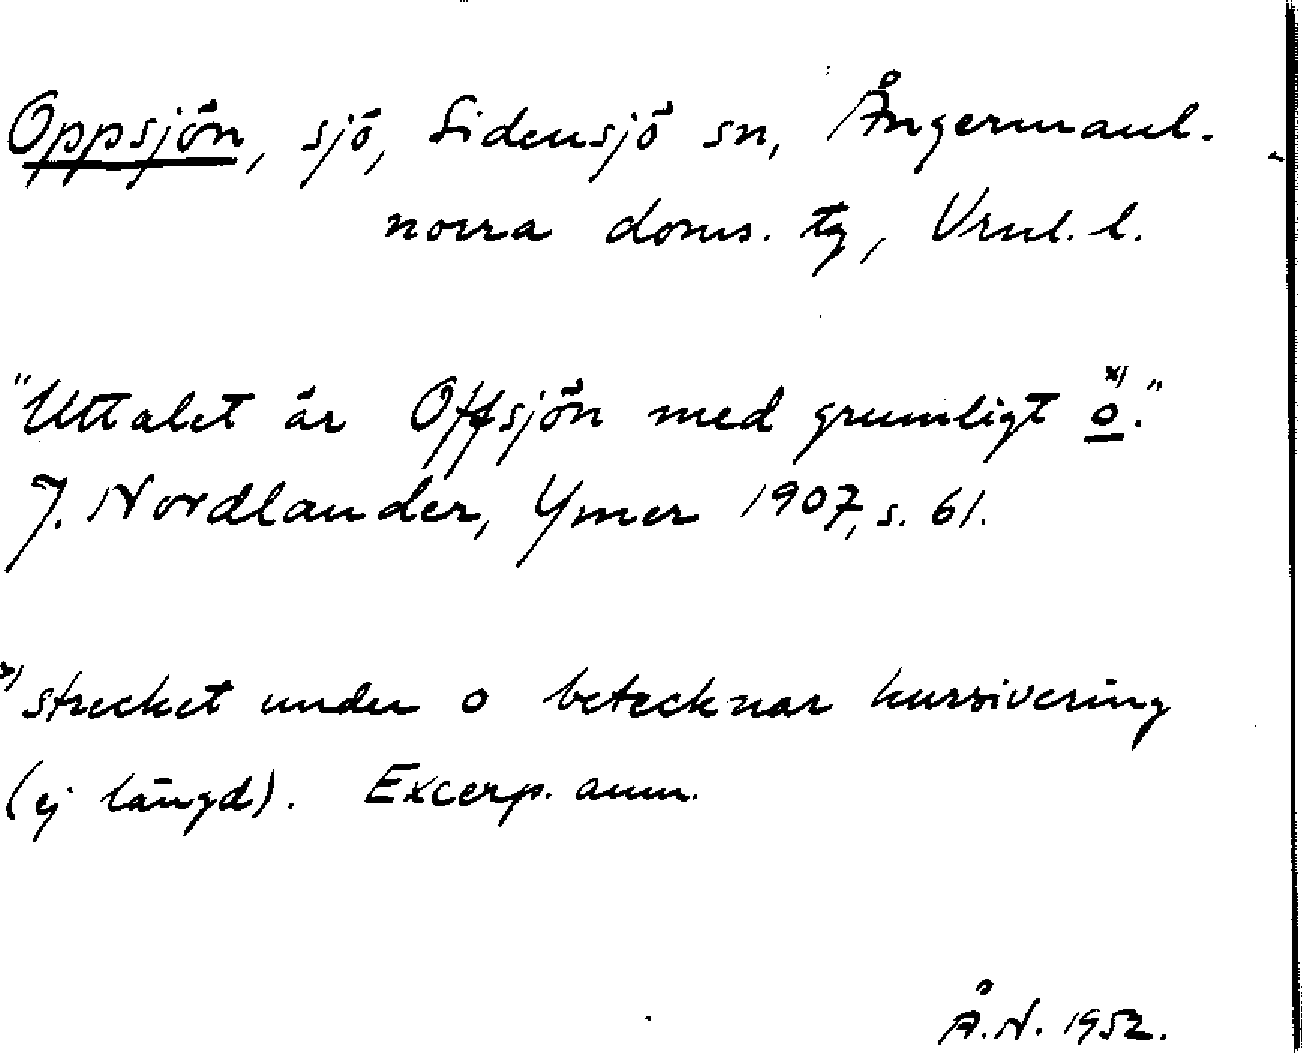 Oppsjön, sjö, Sidensjö sn, Ångermanl.
norra doms. tg, Vrnl. l.
"Uttalet är Offsjön med grumligt o x)."
J. Nordlander, Ymer 1907, s. 61.
x) strecket under o betecknar kursivering
(ej längd). Excerp. anm.
Å.N. 1952.